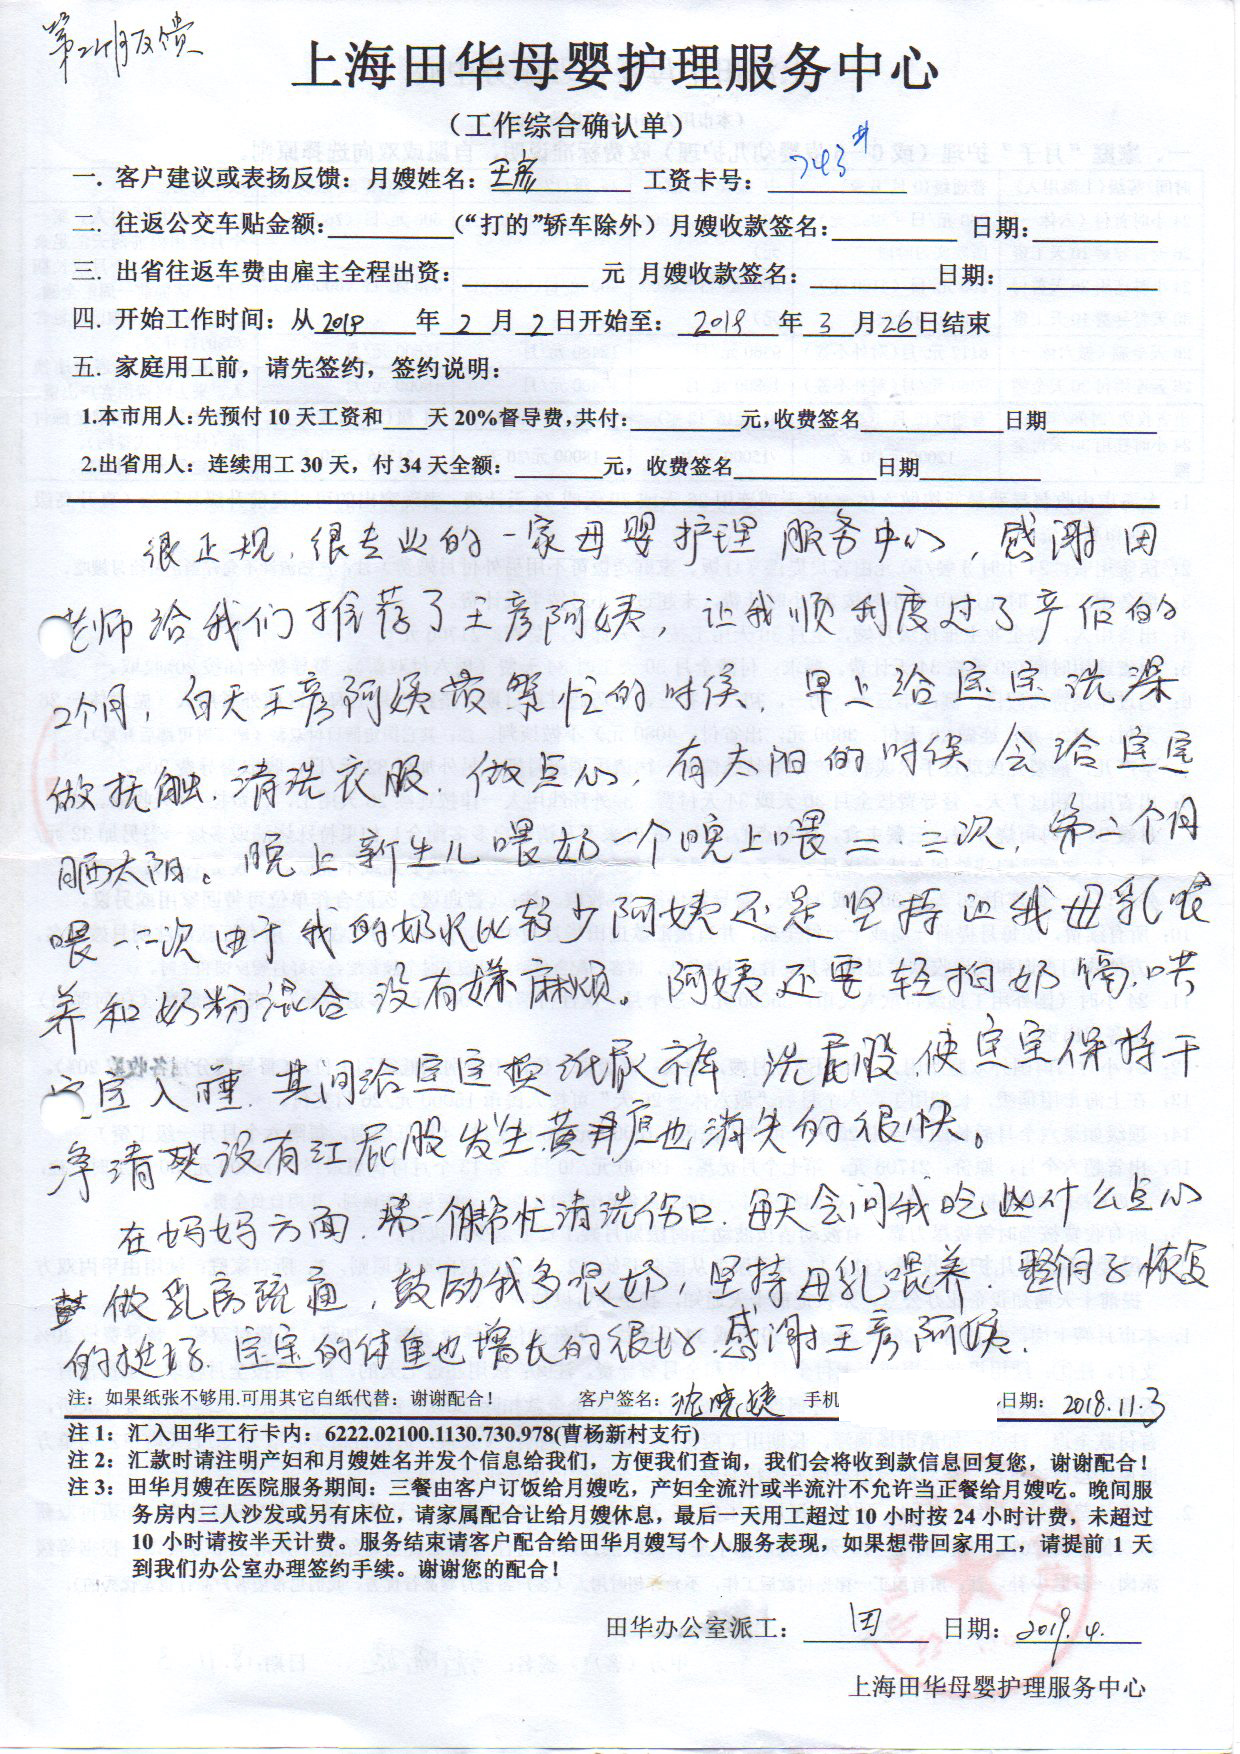 第2个月反馈
上海田华母婴护理服务中心
（工作综合确认单）
一. 客户建议或表扬反馈：月嫂姓名：王彦 工资卡号：743#
二. 往返公交车贴金额：（“打的”轿车除外）月嫂收款签名： 日期：
三. 出省往返车费由雇主全程出资： 元 月嫂收款签名： 日期：
四. 开始工作时间：从2019年2月2日开始至：2019年3月26日结束
五. 家庭用工前，请先签约，签约说明：
1.本市用人：先预付 10 天工资和 天 20%督导费，共付： 元，收费签名 日期
2.出省用人：连续用工 30 天，付 34 天全额： 元，收费签名 日期
很正规，很专业的一家母婴护理服务中心，感谢田
老师给我们推荐了王彦阿姨，让我顺利度过了产后的
2个月，白天王彦阿姨最繁忙的时侯，早上给宝宝洗澡
做抚触，清洗衣服，做点心，有太阳的时侯会给宝宝
晒太阳。晚上新生儿喂奶一个晚上喂二、三次，第二个月
喂一二次由于我的奶水比较少阿姨还是坚持让我母乳喂
养和奶粉混合没有嫌麻烦。阿姨还要轻拍奶嗝，哄
宝宝入睡，其间给宝宝换纸尿裤，洗屁股使宝宝保持干
净清爽没有红屁股发生，黄疸也消失的很快。
在妈妈方面，第一個帮忙清洗伤口，每天会问我吃些什么点心
做乳房疏通，鼓励我多喂奶，坚持母乳喂养，整个月子恢复
的挺好，宝宝的体重也增长的很好，感谢王彦阿姨.
注：如果纸张不够用.可用其它白纸代替：谢谢配合！ 客户签名：沈晓婕 手机 日期：2018.11.3
注 1：汇入田华工行卡内：6222.02100.1130.730.978(曹杨新村支行)
注 2：汇款时请注明产妇和月嫂姓名并发个信息给我们，方便我们查询，我们会将收到款信息回复您，谢谢配合！
注 3：田华月嫂在医院服务期间：三餐由客户订饭给月嫂吃，产妇全流汁或半流汁不允许当正餐给月嫂吃。晚间服
务房内三人沙发或另有床位，请家属配合让给月嫂休息，最后一天用工超过 10 小时按 24 小时计费，未超过
10 小时请按半天计费。服务结束请客户配合给田华月嫂写个人服务表现，如果想带回家用工，请提前 1 天
到我们办公室办理签约手续。谢谢您的配合！
田华办公室派工：田 日期：2019.4.
上海田华母婴护理服务中心